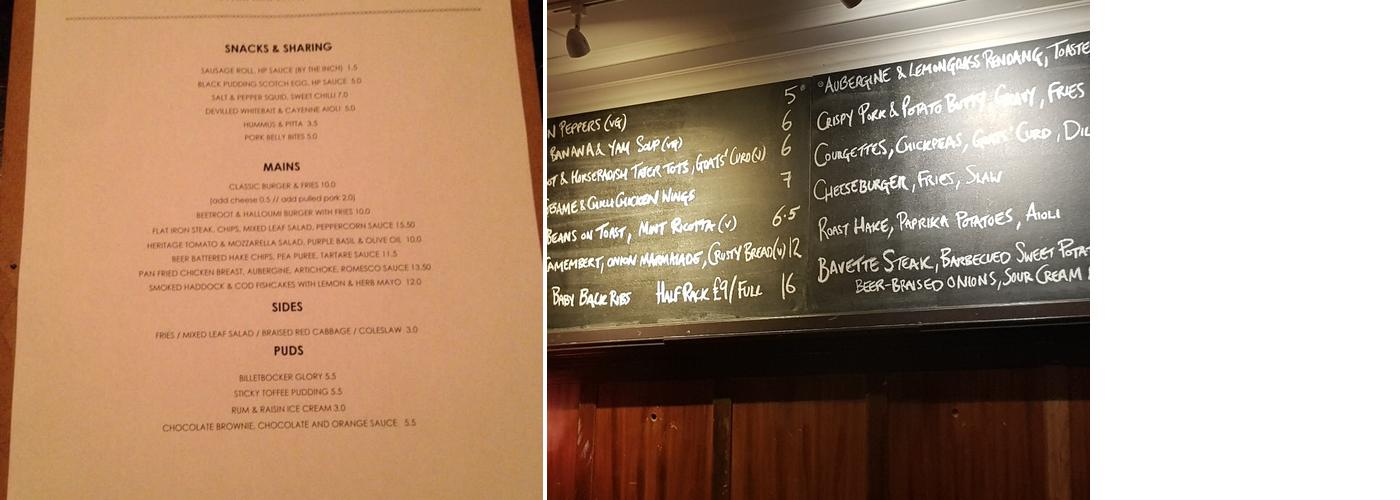 SNACKS & SHARING
SAUSAGE ROLL, HP SAUCE (BY THE INCH) 1.5
BLACK PUDDING SCOTCH EGG, HP SAUCE 5.0
SALT & PEPPER SQUID, SWEET CHILLI 7.0
DEVILLED WHITEBAIT & CAYENNE AIOLI 5.0
HUMMUS & PITTA 3.5
PORK BELLY BITES 5.0
MAINS
CLASSIC BURGER & FRIES 10.0
(add cheese 0.5 // add pulled pork 2.0)
BEETROOT & HALLOUMI BURGER WITH FRIES 10.0
FLAT IRON STEAK, CHIPS, MIXED LEAF SALAD, PEPPERCORN SAUCE 15.50
HERITAGE TOMATO & MOZZARELLA SALAD, PURPLE BASIL & OLIVE OIL 10.0
BEER BATTERED HAKE CHIPS, PEA PUREE, TARTARE SAUCE 11.5
PAN FRIED CHICKEN BREAST, AUBERGINE, ARTICHOKE, ROMESCO SAUCE 13.50
SMOKED HADDOCK & COD FISHCAKES WITH LEMON & HERB MAYO 12.0
SIDES
FRIES / MIXED LEAF SALAD / BRAISED RED CABBAGE / COLESLAW 3.0
PUDS
BILLETBOCKER GLORY 5.5
STICKY TOFFEE PUDDING 5.5
RUM & RAISIN ICE CREAM 3.0
CHOCOLATE BROWNIE, CHOCOLATE AND ORANGE SAUCE 5.5
N PEPPERS (VG) 5
BANANA & YAM SOUP (VG) 6
OT & HORSERADISH TATER TOTS, GOATS' CURD (V) 6
ESAME & CHICKEN WINGS 7
BEANS ON TOAST, MINT RICOTTA (V) 6.5
AMEMBERT, ONION MARMALADE, CRUSTY BREAD (V) 12
BABY BACK RIBS HALF RACK £9/ FULL 16
AUBERGINE & LEMONGRASS RENDANG, TOASTE
CRISPY PORK & POTATO GRAVY, FRIES
COURGETTES, CHICKPEAS, GOATS' CURD, DIL
CHEESEBURGER, FRIES, SLAW
ROAST HAKE, PAPRIKA POTATOES, AIOLI
BAVETTE STEAK, BARBECUED SWEET POTAT
BEER-BRAISED ONIONS, SOUR CREAM